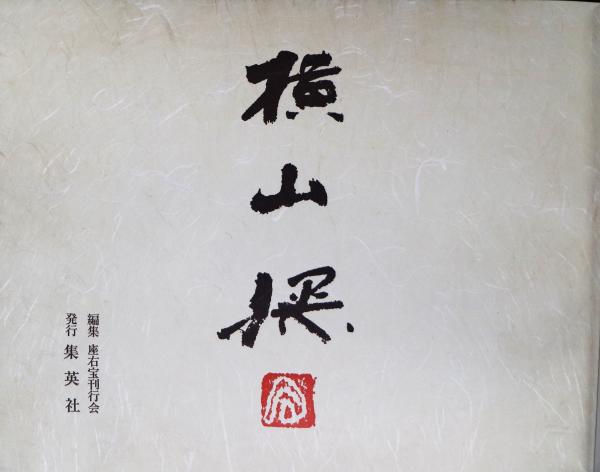 横山操
編集 座右宝刊行会
発行 集英社